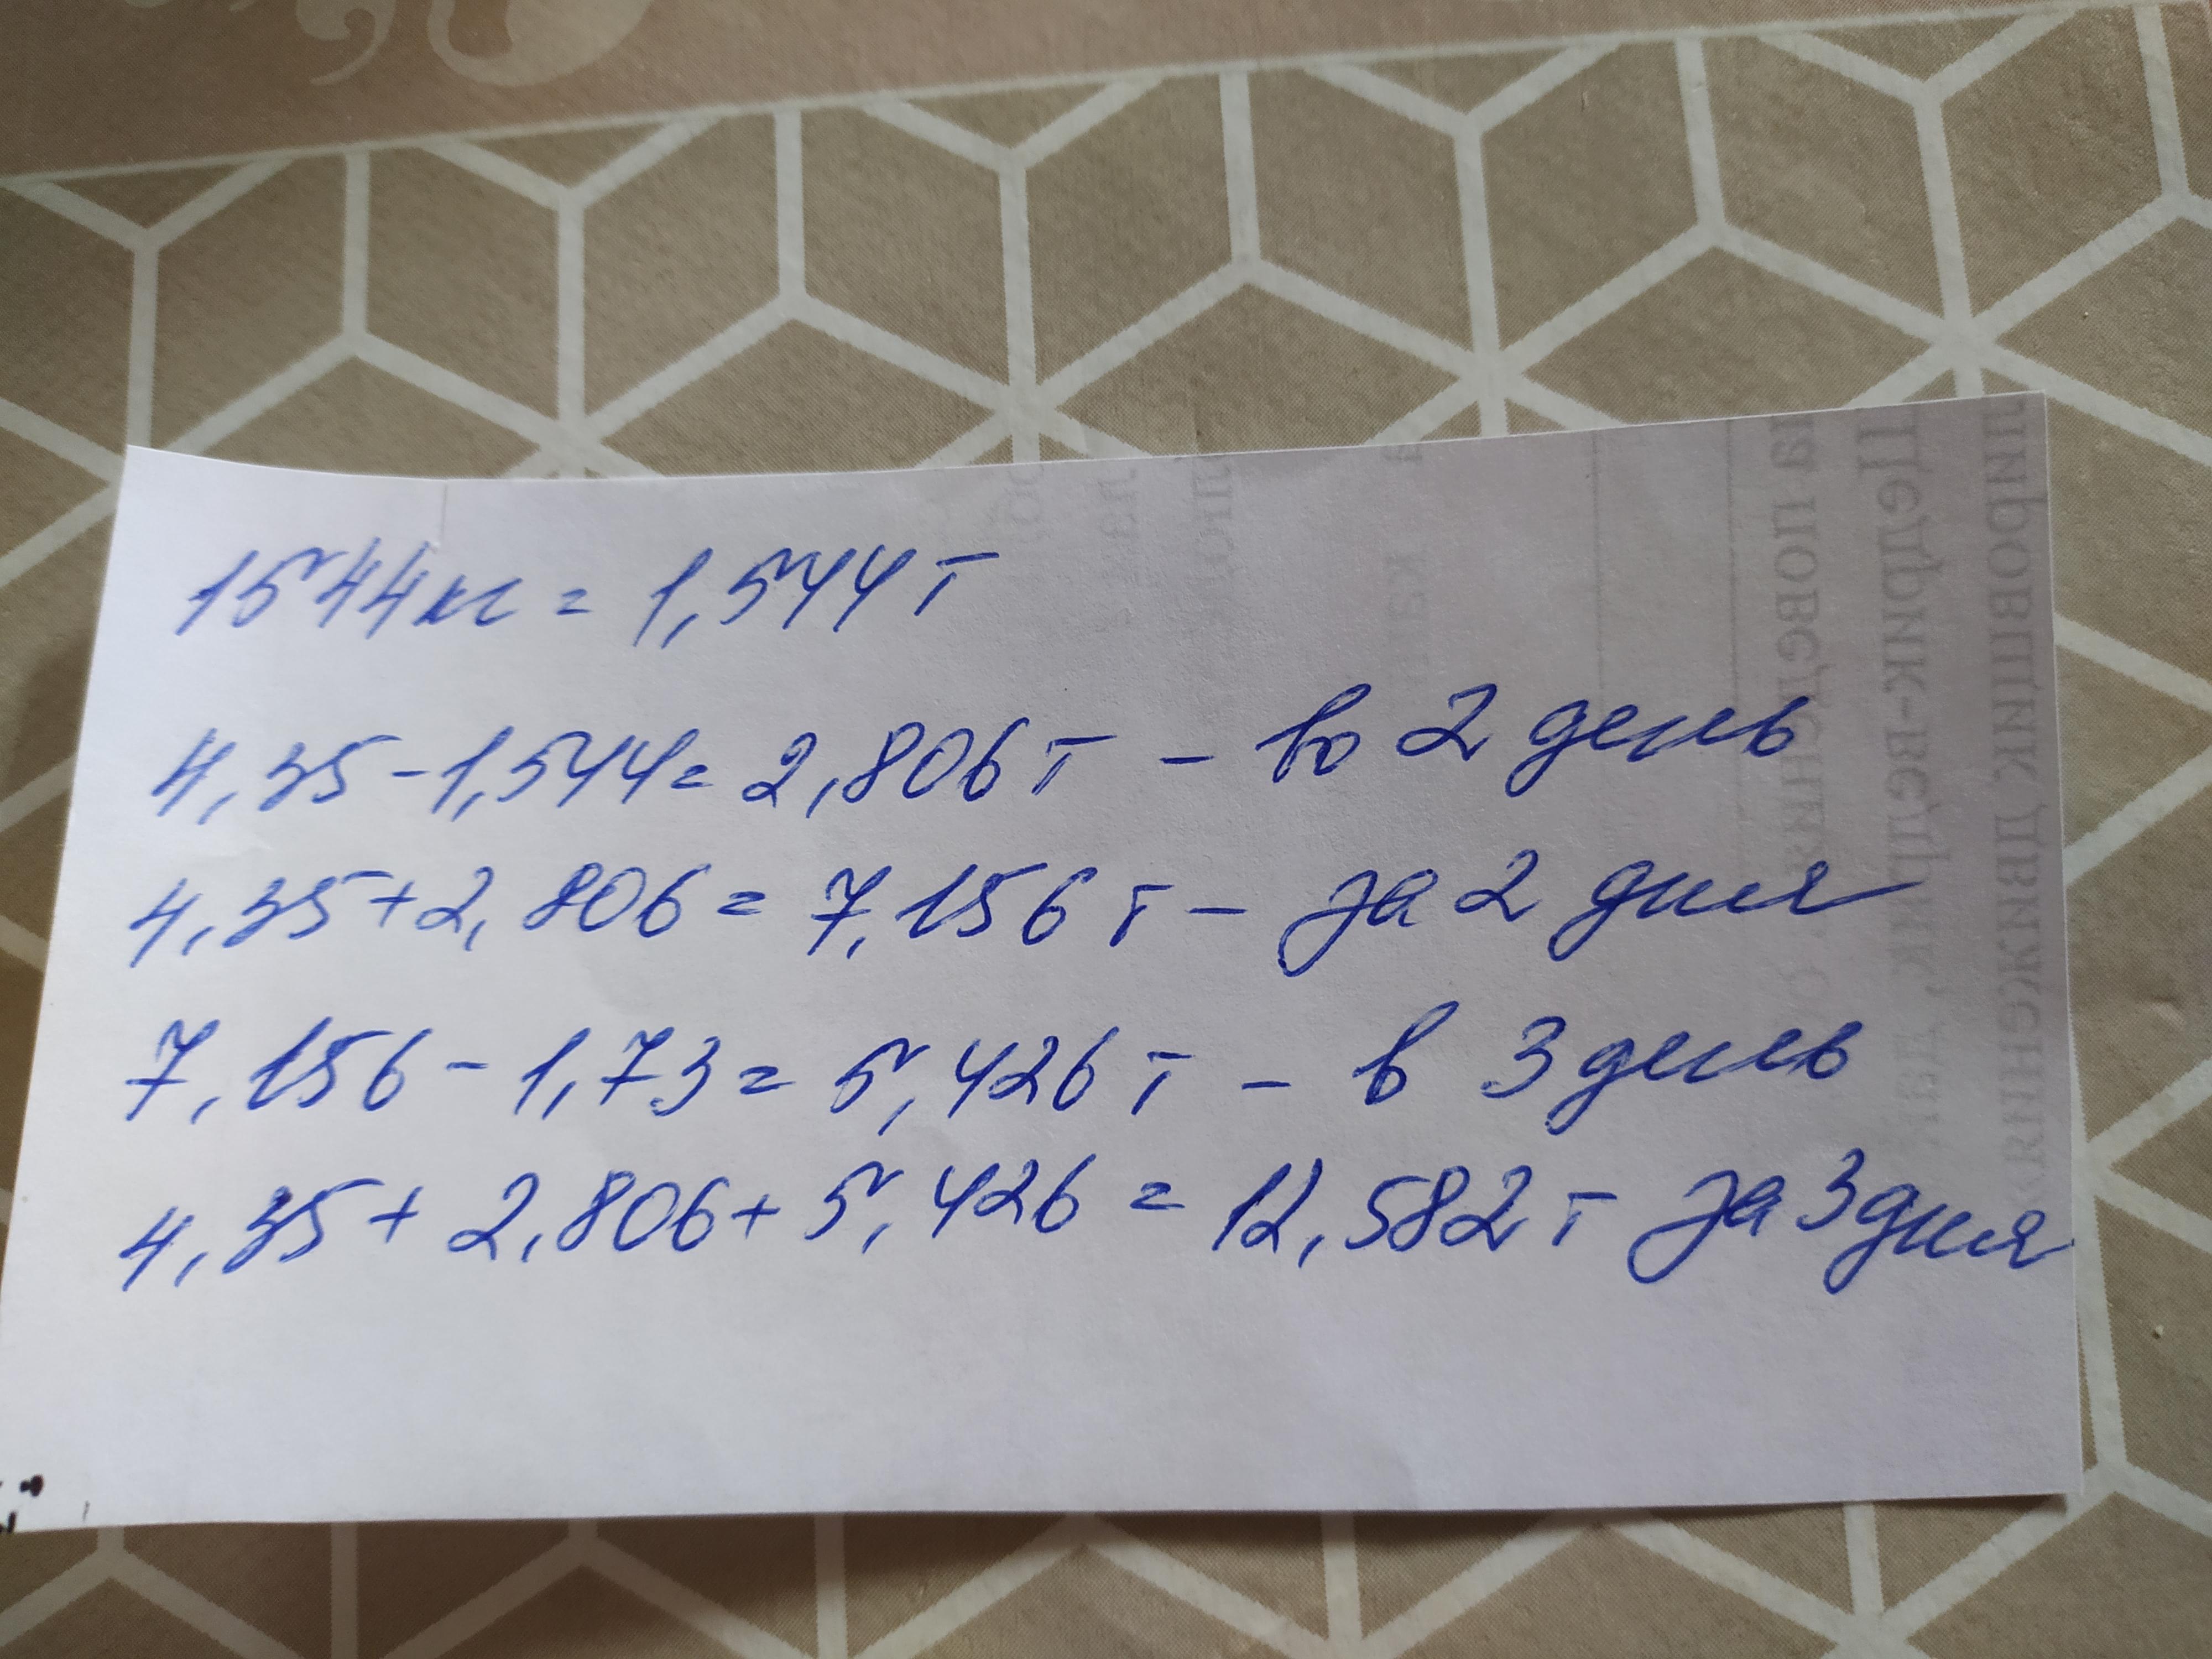 1544кг = 1,544 т
4,35 - 1,544 = 2,806 т - во 2 день
4,35 + 2,806 = 7,156 т - за 2 дня
7,156 - 1,73 = 5,426 т - в 3 день
4,35 + 2,806 + 5,426 = 12,582 т за 3 дня